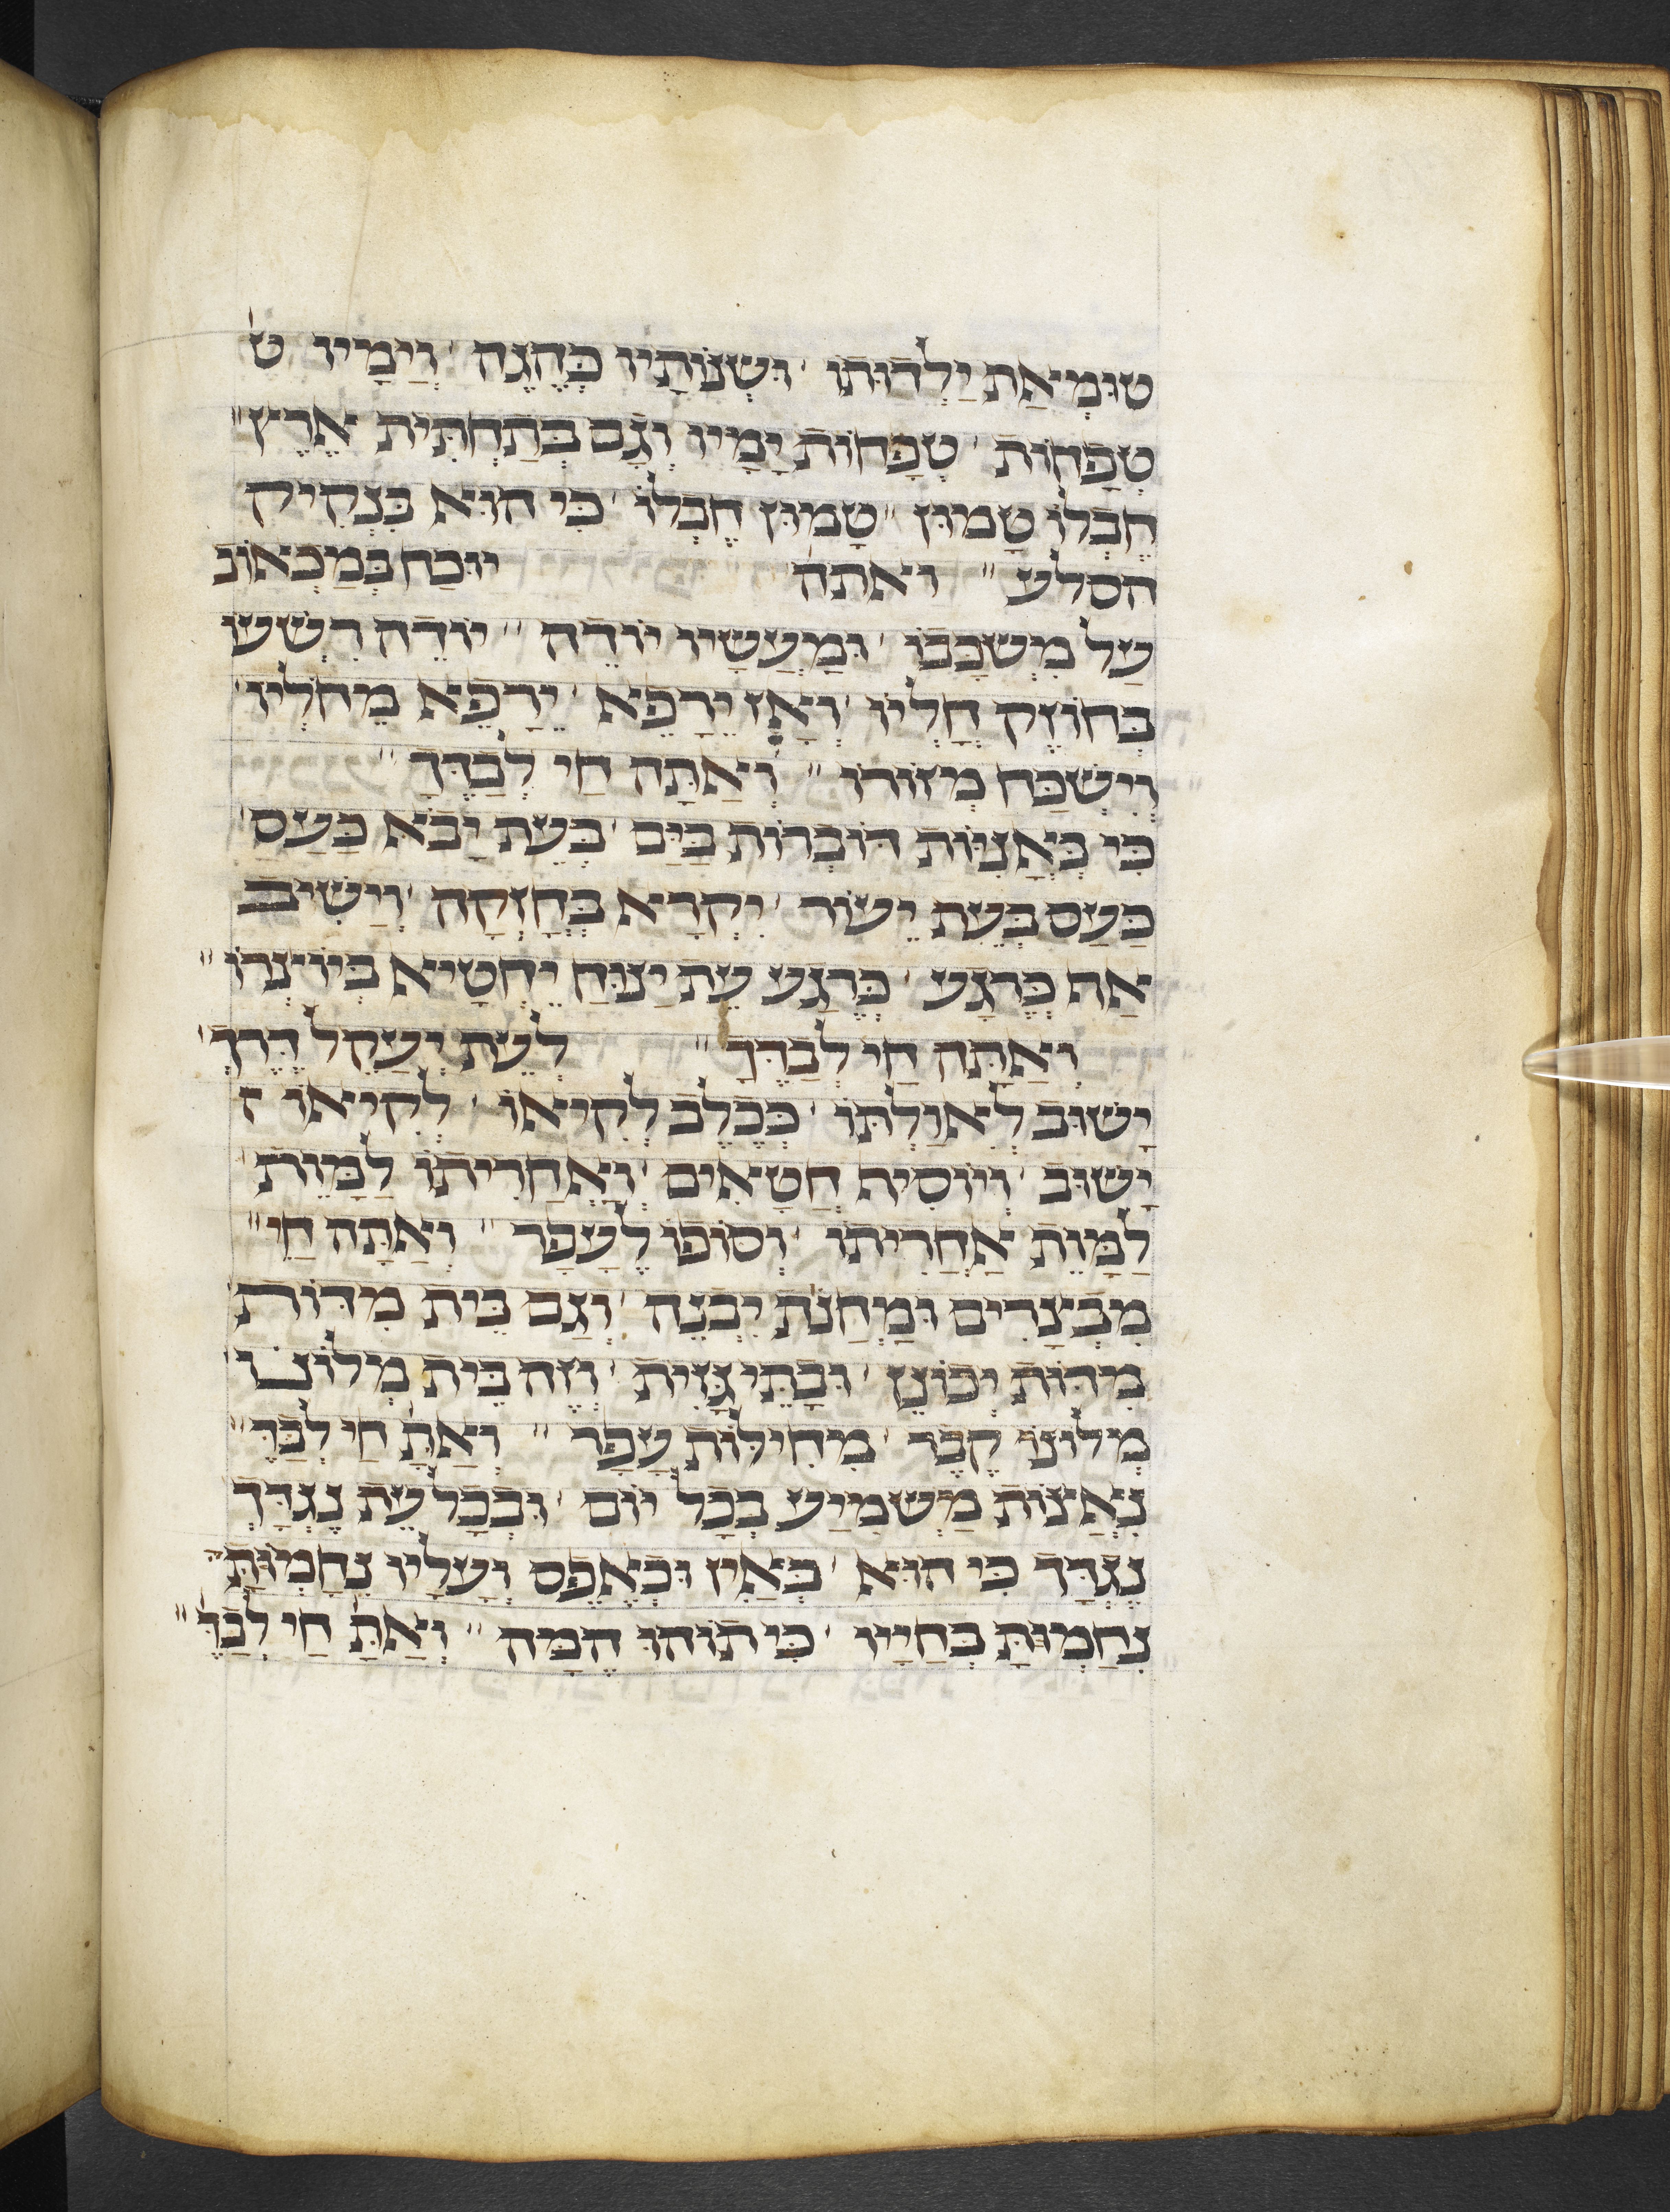 טוּמְאַת יַלְדוּתוֹ · וּשְׁנוֹתָיו כְּהֶגֶה · וְיָמָיו ט׳
טְפָחוֹת · טְפָחוֹת יָמָיו וְגַם בְּתַחְתִּית אֶרֶץ ״
חֶבְלוֹ טָמוּן ״ טָמוּן חֶבְלוֹ · כִּי הוּא בִּנְקִיק
הסלע ״ ואתה יוּכַח בְּמַכְאוֹב
עַל מִשְׁכָּבוֹ · וּמַעֲשָׂיו יוֹדֶה ״ יוֹדֶה רִשְׁעוֹ
בְּחוֹזֶק חָלְיוֹ · וְאָז יֵרָפֵא · יֵרָפֵא מֵחָלְיוֹ ·
וְיִשְׁכַּח מְזוֹרוֹ ״ וְאַתָּה חַי לְבַדֶּךָ ״
כִּי כְּאֳנִיּוֹת דּוֹבְרוֹת בַּיָּם · בְּעֵת יָבֹא כַּעַס ·
כַּעַס בְּעֵת יֵעוֹר · יִקְרָא בְּחָזְקָה · וְיָשִׁיב
אַף כְּרֶגַע · כְּרֶגַע עֵת יָנוּחַ יֶחֱטָיא בְּיוֹצְרוֹ ״
וְאַתָּה חַי לְבַדֶּךָ ״ לְעֵת יְעַקֵל דֶּרֶךְ ·
יָשׁוּב לְאִוַּלְתּוֹ · כְּכֶלֶב לְקִיאוֹ · לְקִיאוֹ ק
יָשׁוּב · וְיוֹסִיף חֲטָאִים · וְאַחֲרִיתוֹ לַמָּוֶת ·
לַמָּוֶת אַחֲרִיתוֹ · וְסוֹפוֹ לֶעָפָר ״ וְאַתָּה חַי ״
מִבְצָרִים וּמַחֲנֹת יִבְנֶה · וְגַם בֵּית מִדּוֹת ·
מִדּוֹת יְכוֹנֵן · וּבָתֵּי גָּזִית · וְזֶה בֵּית מְלוֹנוֹ ·
מְלוֹנוֹ קֶבֶר · מִחִילּוֹת עָפָר ״ וְאַתָּ׳ חַי לְבַדֶּ׳ ״
נְאַצוֹת מַשְׁמִיעַ בְּכָל יוֹם · וּבְכָל עֵת נֶגְדָּךְ
נֶגְדָּךְ כִּי הוּא · כְּאַיִן וּכְאֶפֶס וְעָלָיו נִחָמְתָּ ·
נִחַמְתָּ בְּחַיָּיו · כִּי תוֹהוּ הֵמָּה ״ וְאַתָּ׳ חַי לְבַדֶּ׳ ״